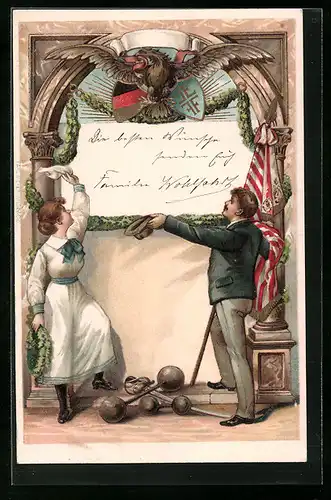 Die besten Wünsche
senden Euch
Familie Wohlfahrt